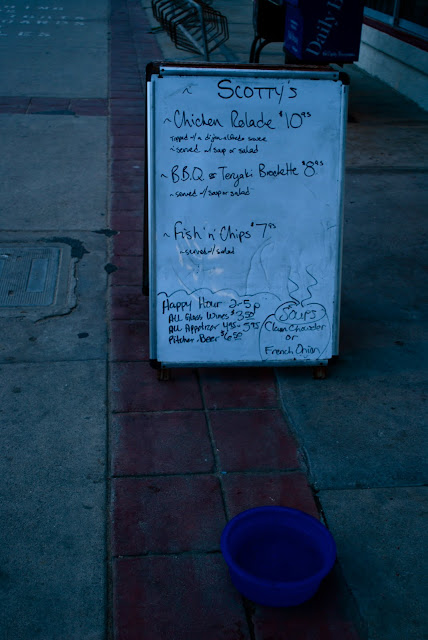 Daily D
~ SCOTTY'S
~Chicken Rolade $10.95
Topped w/ a dijon alfredo sauce
~served w/ soup or salad
~B.B.Q or Teryaki Brochette $8.95
~served w/ soup or salad
~Fish 'n' Chips $7.95
~served w/ salad
Happy Hour 2-5p
All Glass Wines $3.50
All Appetizer 4.95-5.95
Pitcher Beer $6.50
Soups
Clam Chowder
or
French Onion